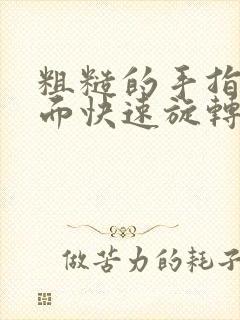 粗糙的手指
而快速旋轉
做苦力的耗子